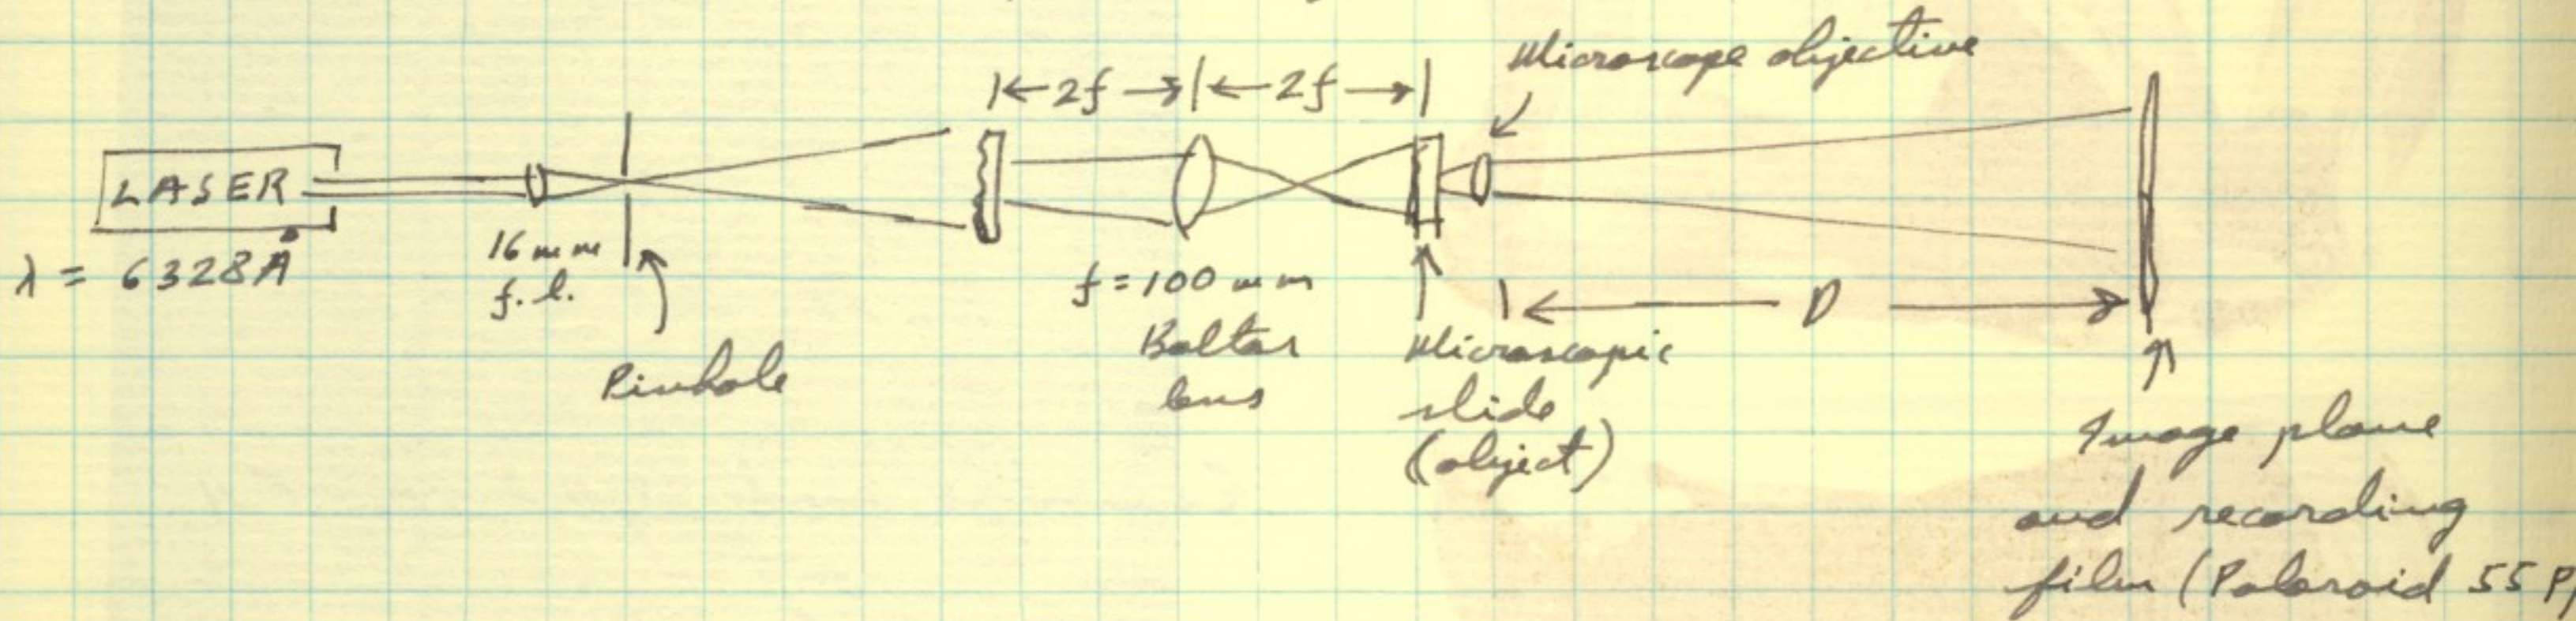 Microscope objective
|← 2f →|← 2f →|
LASER
λ = 6328Å
16 mm
f.l.
Pinhole
f = 100 mm
Baltar
lens
Microscopic
slide
(object)
|← D →
Image plane
and recording
film (Polaroid 55 P/